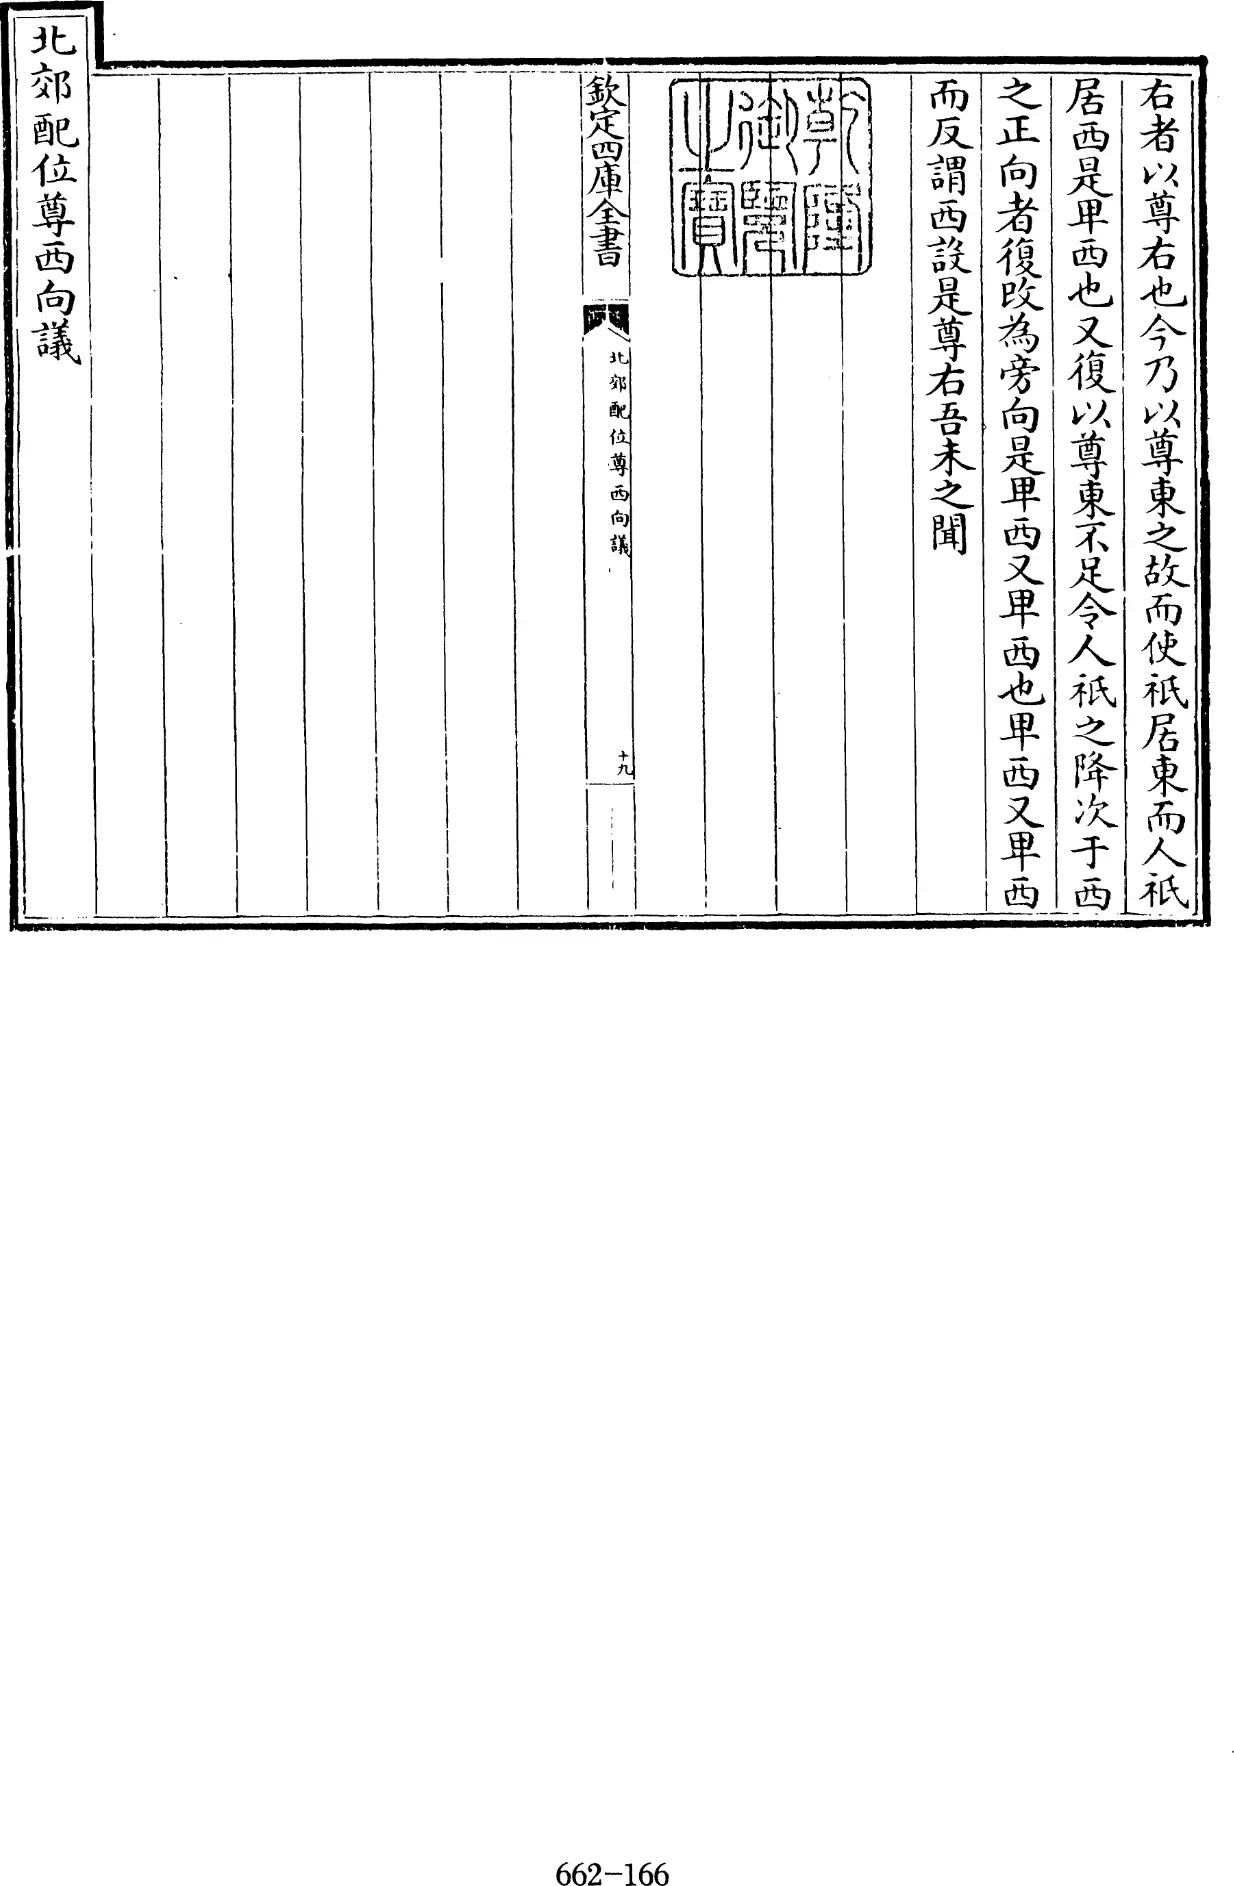 右者以尊右也今乃以尊東之故而使祇居東而人祇
居西是卑西也又復以尊東不足令人祇之降次于西
之正向者復改為旁向是卑西又卑西也卑西又卑西
而反謂西設是尊右吾未之聞
乾隆御覽之寶
欽定四庫全書
北郊配位尊西向議
十九
北郊配位尊西向議
662-166